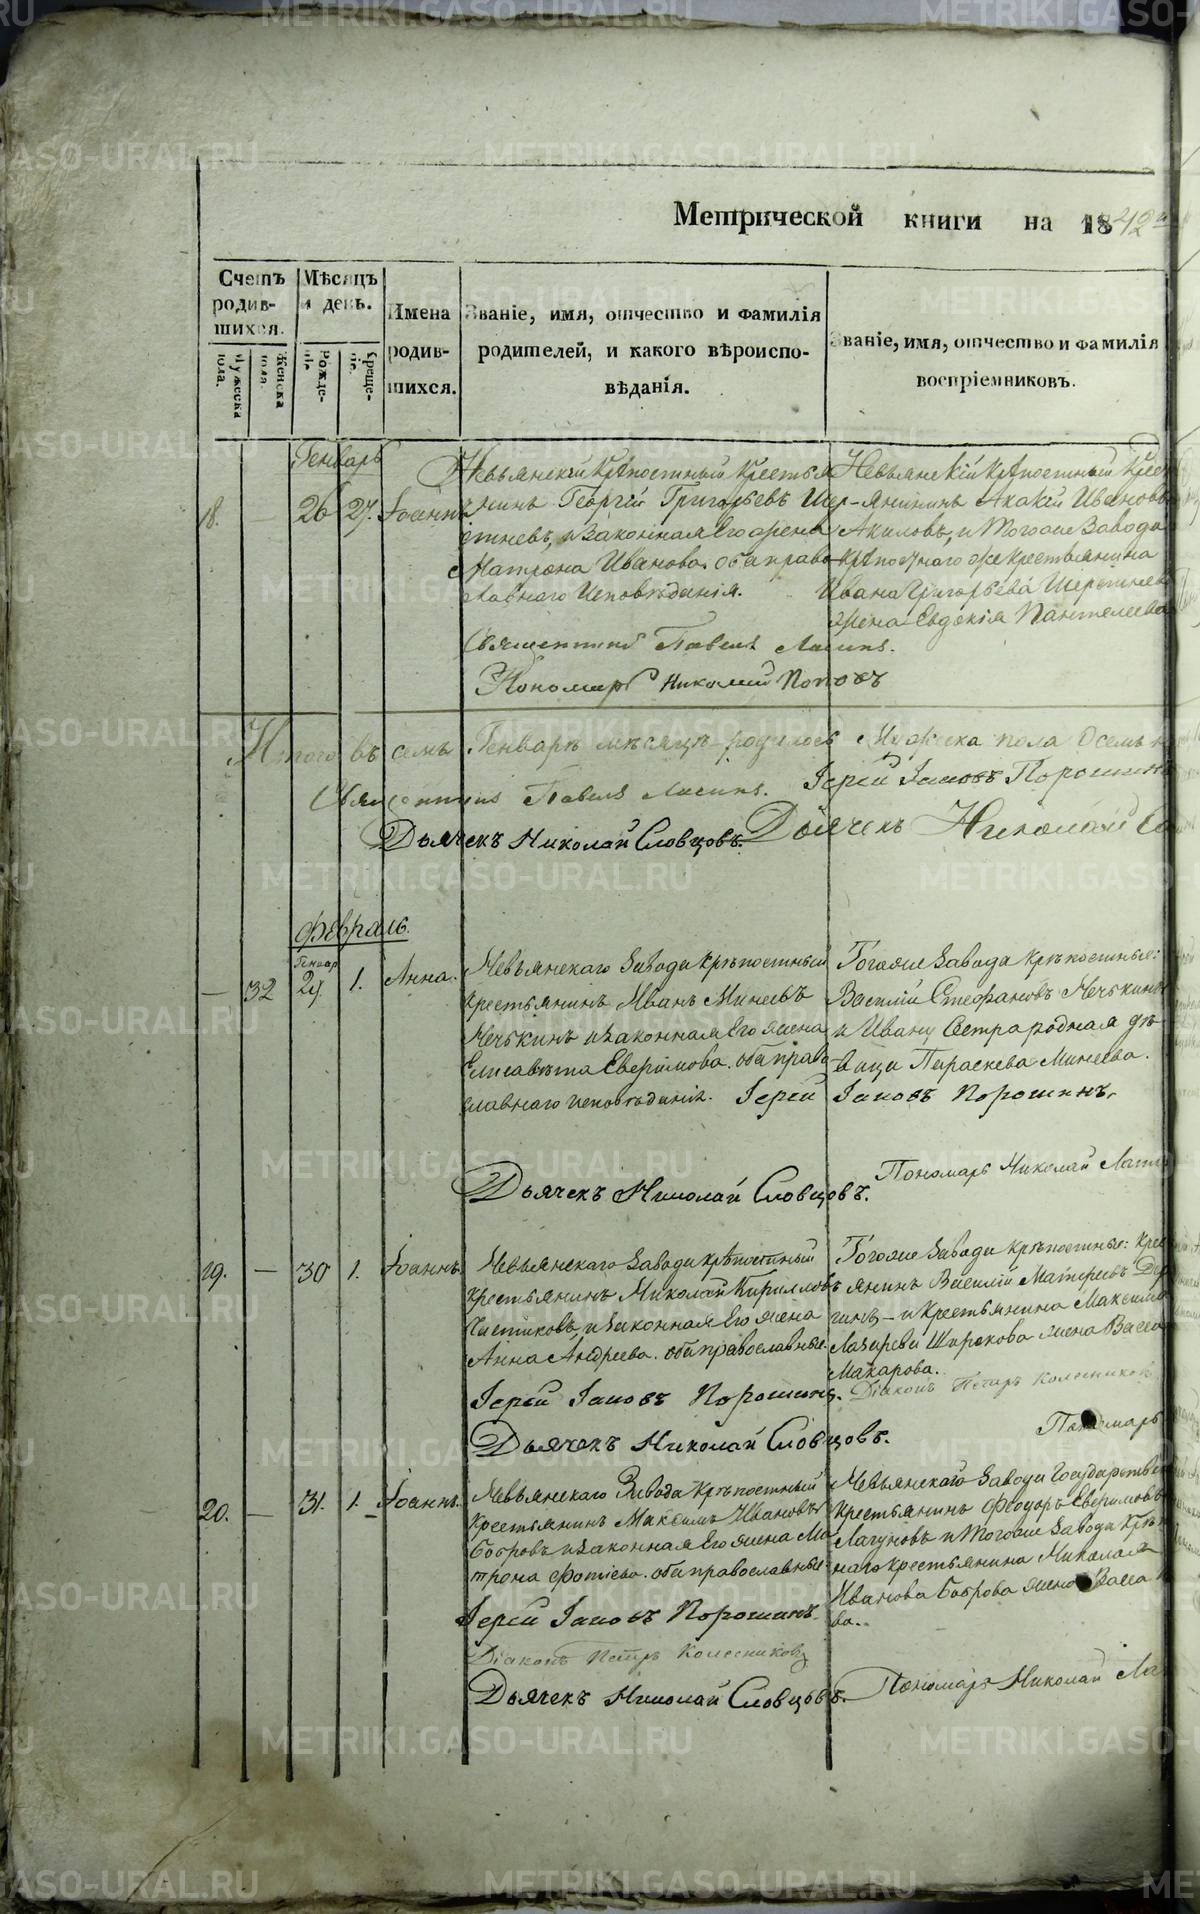 Метрической книги на 1842
Счетъ родив-шихся.
Мѣсяцъ и день.
Имена родив-шихся.
Званіе, имя, отчество и фамилія родителей, и какого вѣроиспо-вѣданія.
Званіе, имя, отчество и фамилія воспріемниковъ.
Мужеска пола.
Женска пола.
Рожде-
Креще-
Генварь
18. — 26 27. Іоаннъ
Невьянскій крѣпостный крестья
нинъ Георгій Григорьевъ Шер-
стневъ, и законная его жена
Матрона Иванова. оба право
славнаго исповѣданія.
Невьянскій крѣпостный крес
янинъ Акакій Ивановъ
Акиловъ, и тогоже завода
крѣпостнаго же крестьянина
Ивана Григорьева Шерстнева
жена Евдокія Пантелеева
Священникъ Павелъ
Пономарь Николай Поповъ
Итого въ семъ Генварѣ мѣсяцѣ родилось мужеска пола осемь
Іерей Іаковъ Порошинъ
Священникъ Павелъ
Дьячекъ Николай Словцовъ. Дьячекъ Николай
Февраль.
Генвар
— 32 29. 1. Анна.
Невьянскаго завода крѣпостный
крестьянинъ Иванъ Минеевъ
Нечькинъ и законная его жена
Елисавета Евфимова. оба право
славнаго исповѣданія.
Тогоже завода крѣпостные:
Василій Стефановъ Нечькинъ
и Ивану сестра родная дѣ-
вица Параскева Минеева.
Іерей Іаковъ Порошинъ.
Пономарь Николай
Дьячекъ Николай Словцовъ.
19. — 30 1. Іоаннъ.
Невьянскаго завода крѣпостный
крестьянинъ Николай Кирилловъ
Чистяковъ, и законная его жена
Анна Андреева. оба православные.
Тогоже завода крѣпостные: крес
янинъ Василій Матфеевъ
гинъ – и крестьянина Максима
Лазарева Широкова жена Васса
Макарова.
Іерей Іаковъ Порошинъ. Діаконъ Петръ Колесниковъ
Дьячекъ Николай Словцовъ.
Пономарь
20. — 31. 1. Іоаннъ.
Невьянскаго завода крѣпостный
крестьянинъ Максимъ Ивановъ
Бобровъ и законная его жена Ма
трона Фотіева. оба православные.
Невьянскаго завода государствен
крестьянинъ Феодоръ Евфимовъ
Лагуновъ и тогоже завода крѣп
наго крестьянина Николая
Иванова Боброва жена Васса
ва.
Іерей Іаковъ Порошинъ.
Діаконъ Петръ Колесниковъ
Дьячекъ Николай Словцовъ. Пономарь Николай
METRIKI.GASO-URAL.RU